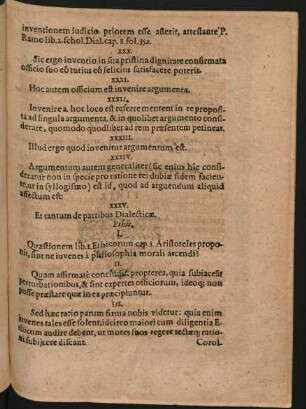 inventionem iudicio priorem esse asserit, attestante P.
Ramo lib. 2. schol. Dial. cap. 8. fol. 352.
XXX.
Sic ergo inventio in sua pristina dignitate confirmata
officio suo eò tutius eò felicius satisfacere poterit.
XXXI.
Hoc autem officium est invenire argumenta.
XXXII.
Invenire a. hoc loco est referre mentem in re proposi-
ta ad singula argumenta, & in quolibet argumento consi-
derare, quomodo quodlibet ad rem præsentem pertineat.
XXXIII.
Illud ergo quod invenitur argumentum est.
XXXIV.
Argumentum autem generaliter (sic enim hîc consi-
deratur non in specie pro ratione rei dubiæ fidem facien-
te, ut in syllogismo) est id, quod ad arguendum aliquid
affectum est:
XXXV.
Et tantum de partibus Dialecticæ.
Ethic.
I.
Quæstionem lib. 1. Ethicorum cap. 1. Aristoteles propo-
nit, sint ne iuvenes à philosophia morali arcendi?
II.
Quam affirmatè concludit, propterea, quia subiaceāt
perturbationibus, & sint expertes officiorum, ideoq; non
posse præstare quæ in ea præcipiuntur.
III.
Sed hæc ratio parum firma nobis videtur: quia enim
iuvenes tales esse solent, idcirco maiori cum diligentia E-
thicum audire debent, ut mores suos regere rectæq; ratio-
ni subijcere discant.
Corol.